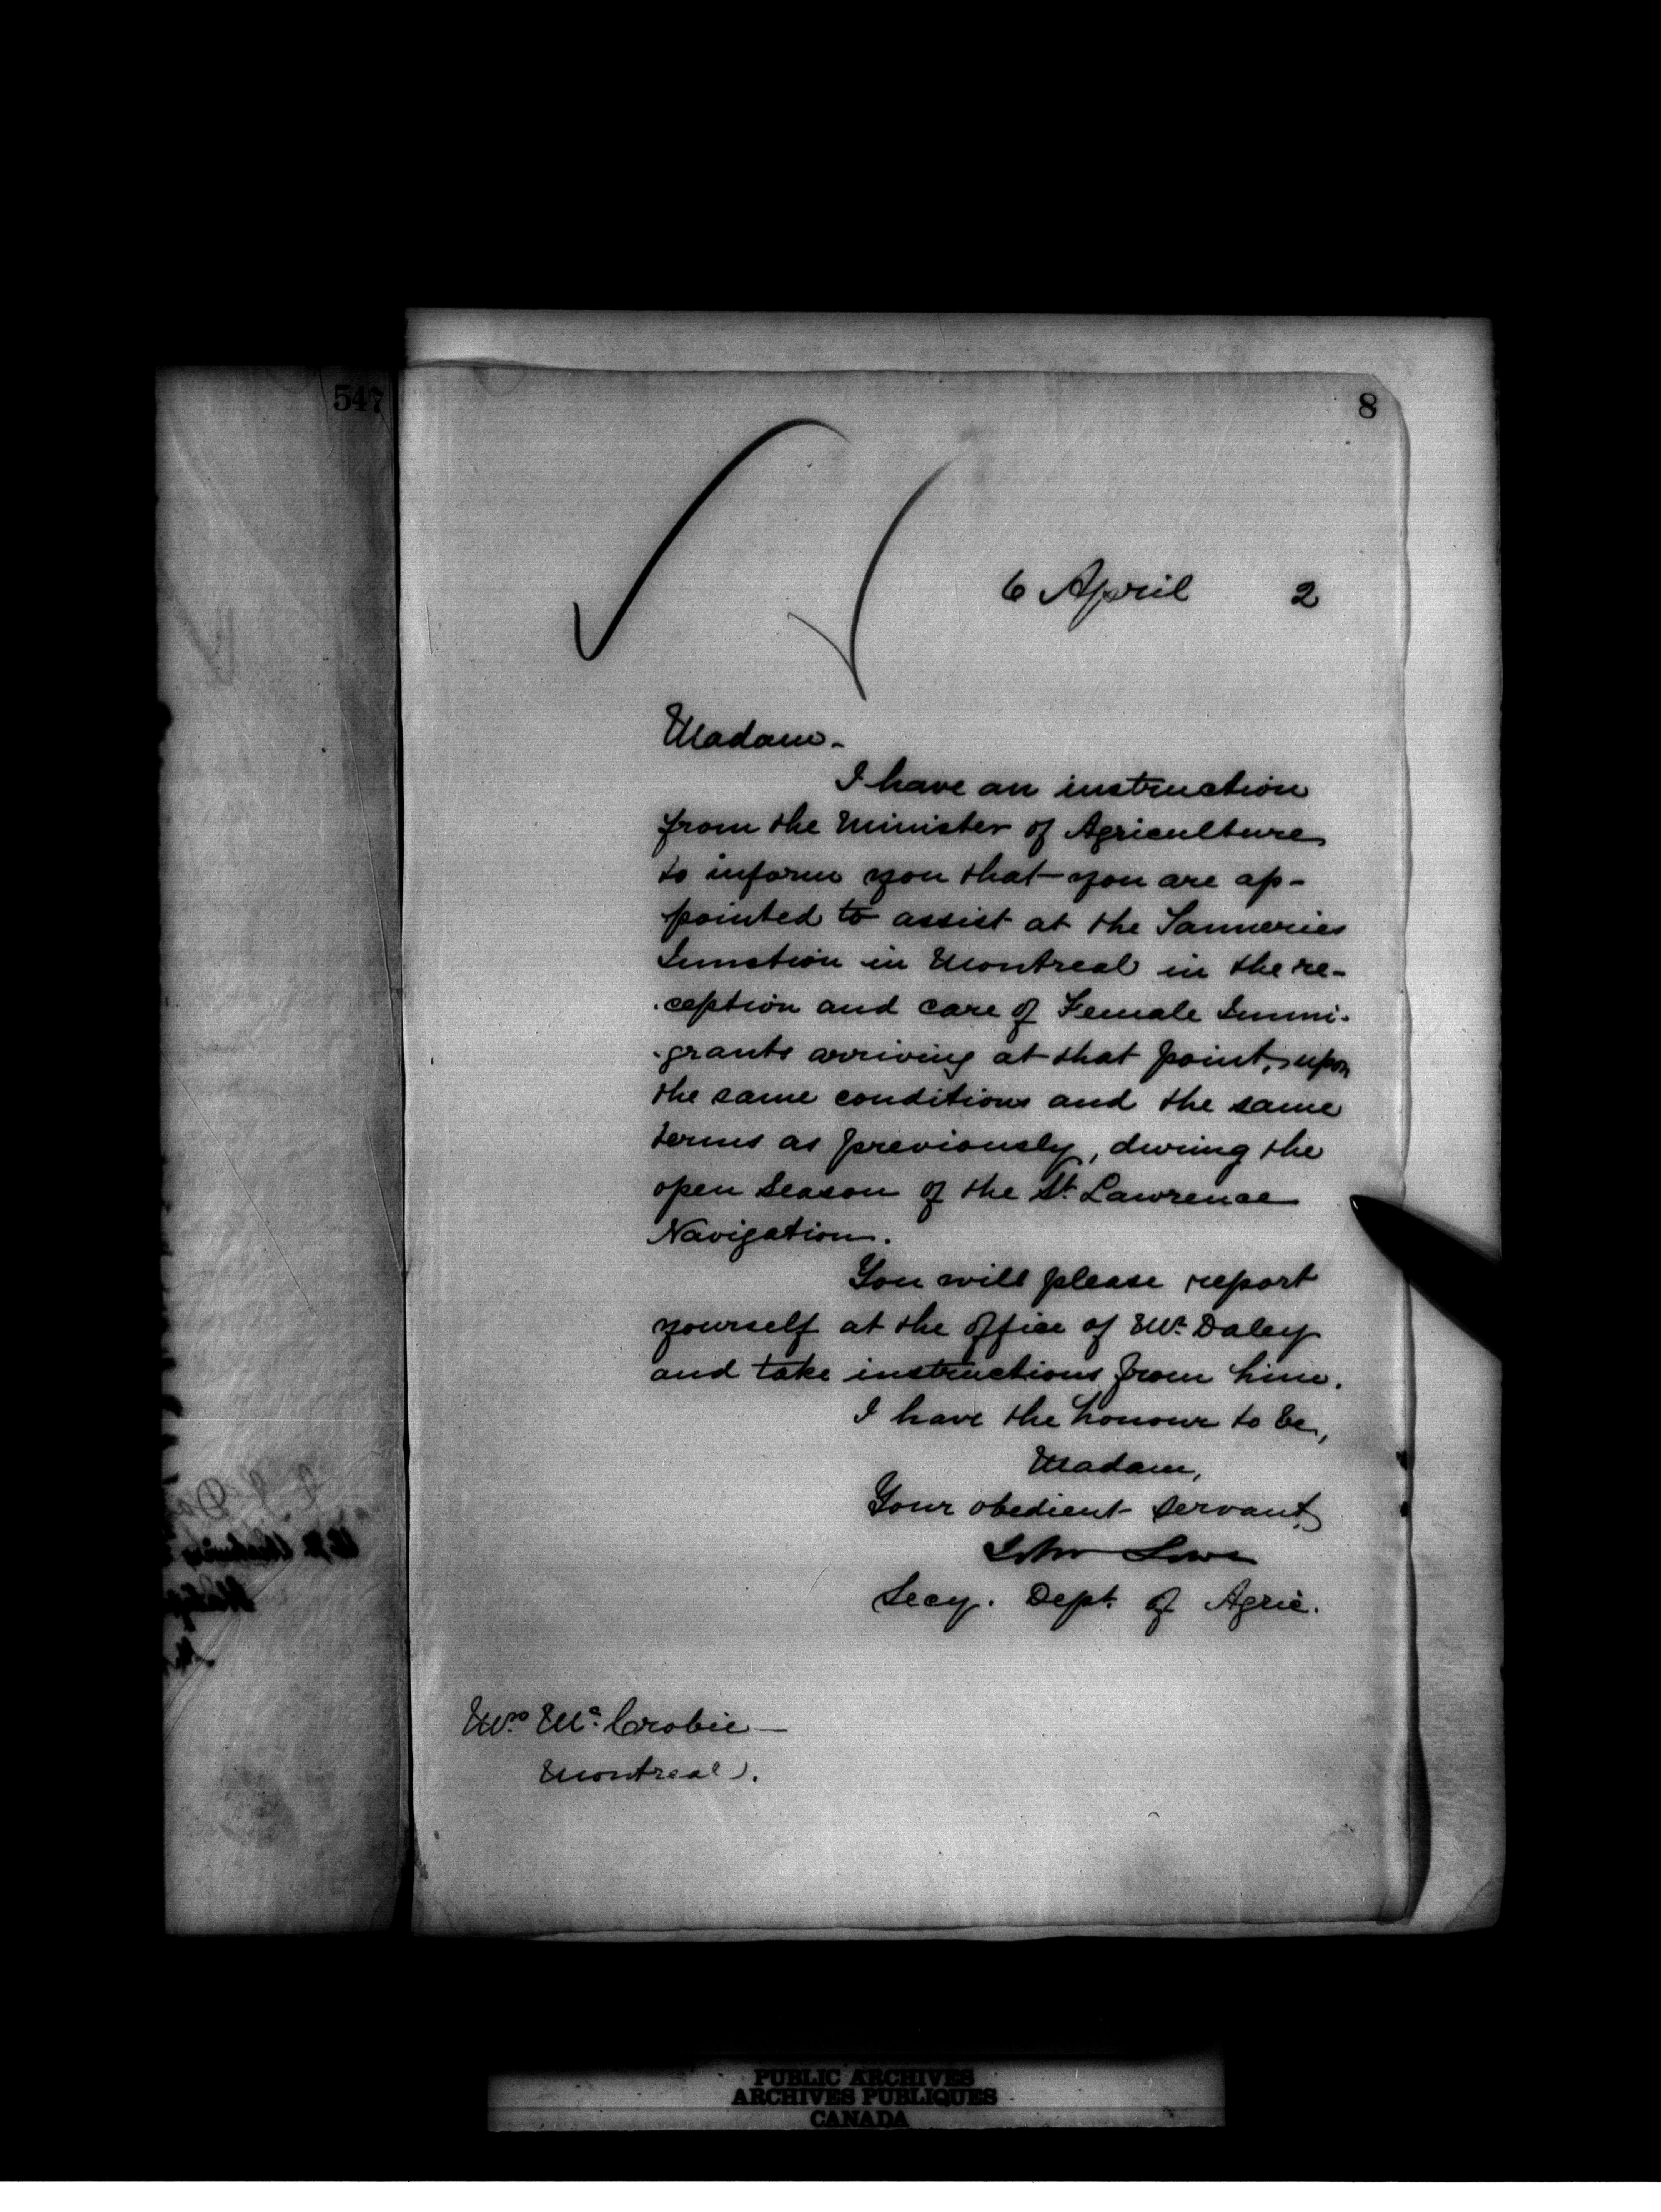 547
8
6 April 2
Madam -
I have an instruction
from the Minister of Agriculture
to inform you that you are ap-
pointed to assist at the Tanneries
Junction in Montreal in the re-
ception and care of Female Immi-
grants arriving at that point, upon
the same conditions and the same
terms as previously, during the
open season of the St. Lawrence
Navigation.
You will please report
yourself at the office of Mr. Daley
and take instructions from him.
I have the honour to be,
Madam,
Your obedient servant,
John Lowe
Secy. Dept. of Agric.
Mrs. Mc. Crobie
Montreal.
PUBLIC ARCHIVES
ARCHIVES PUBLIQUES
CANADA